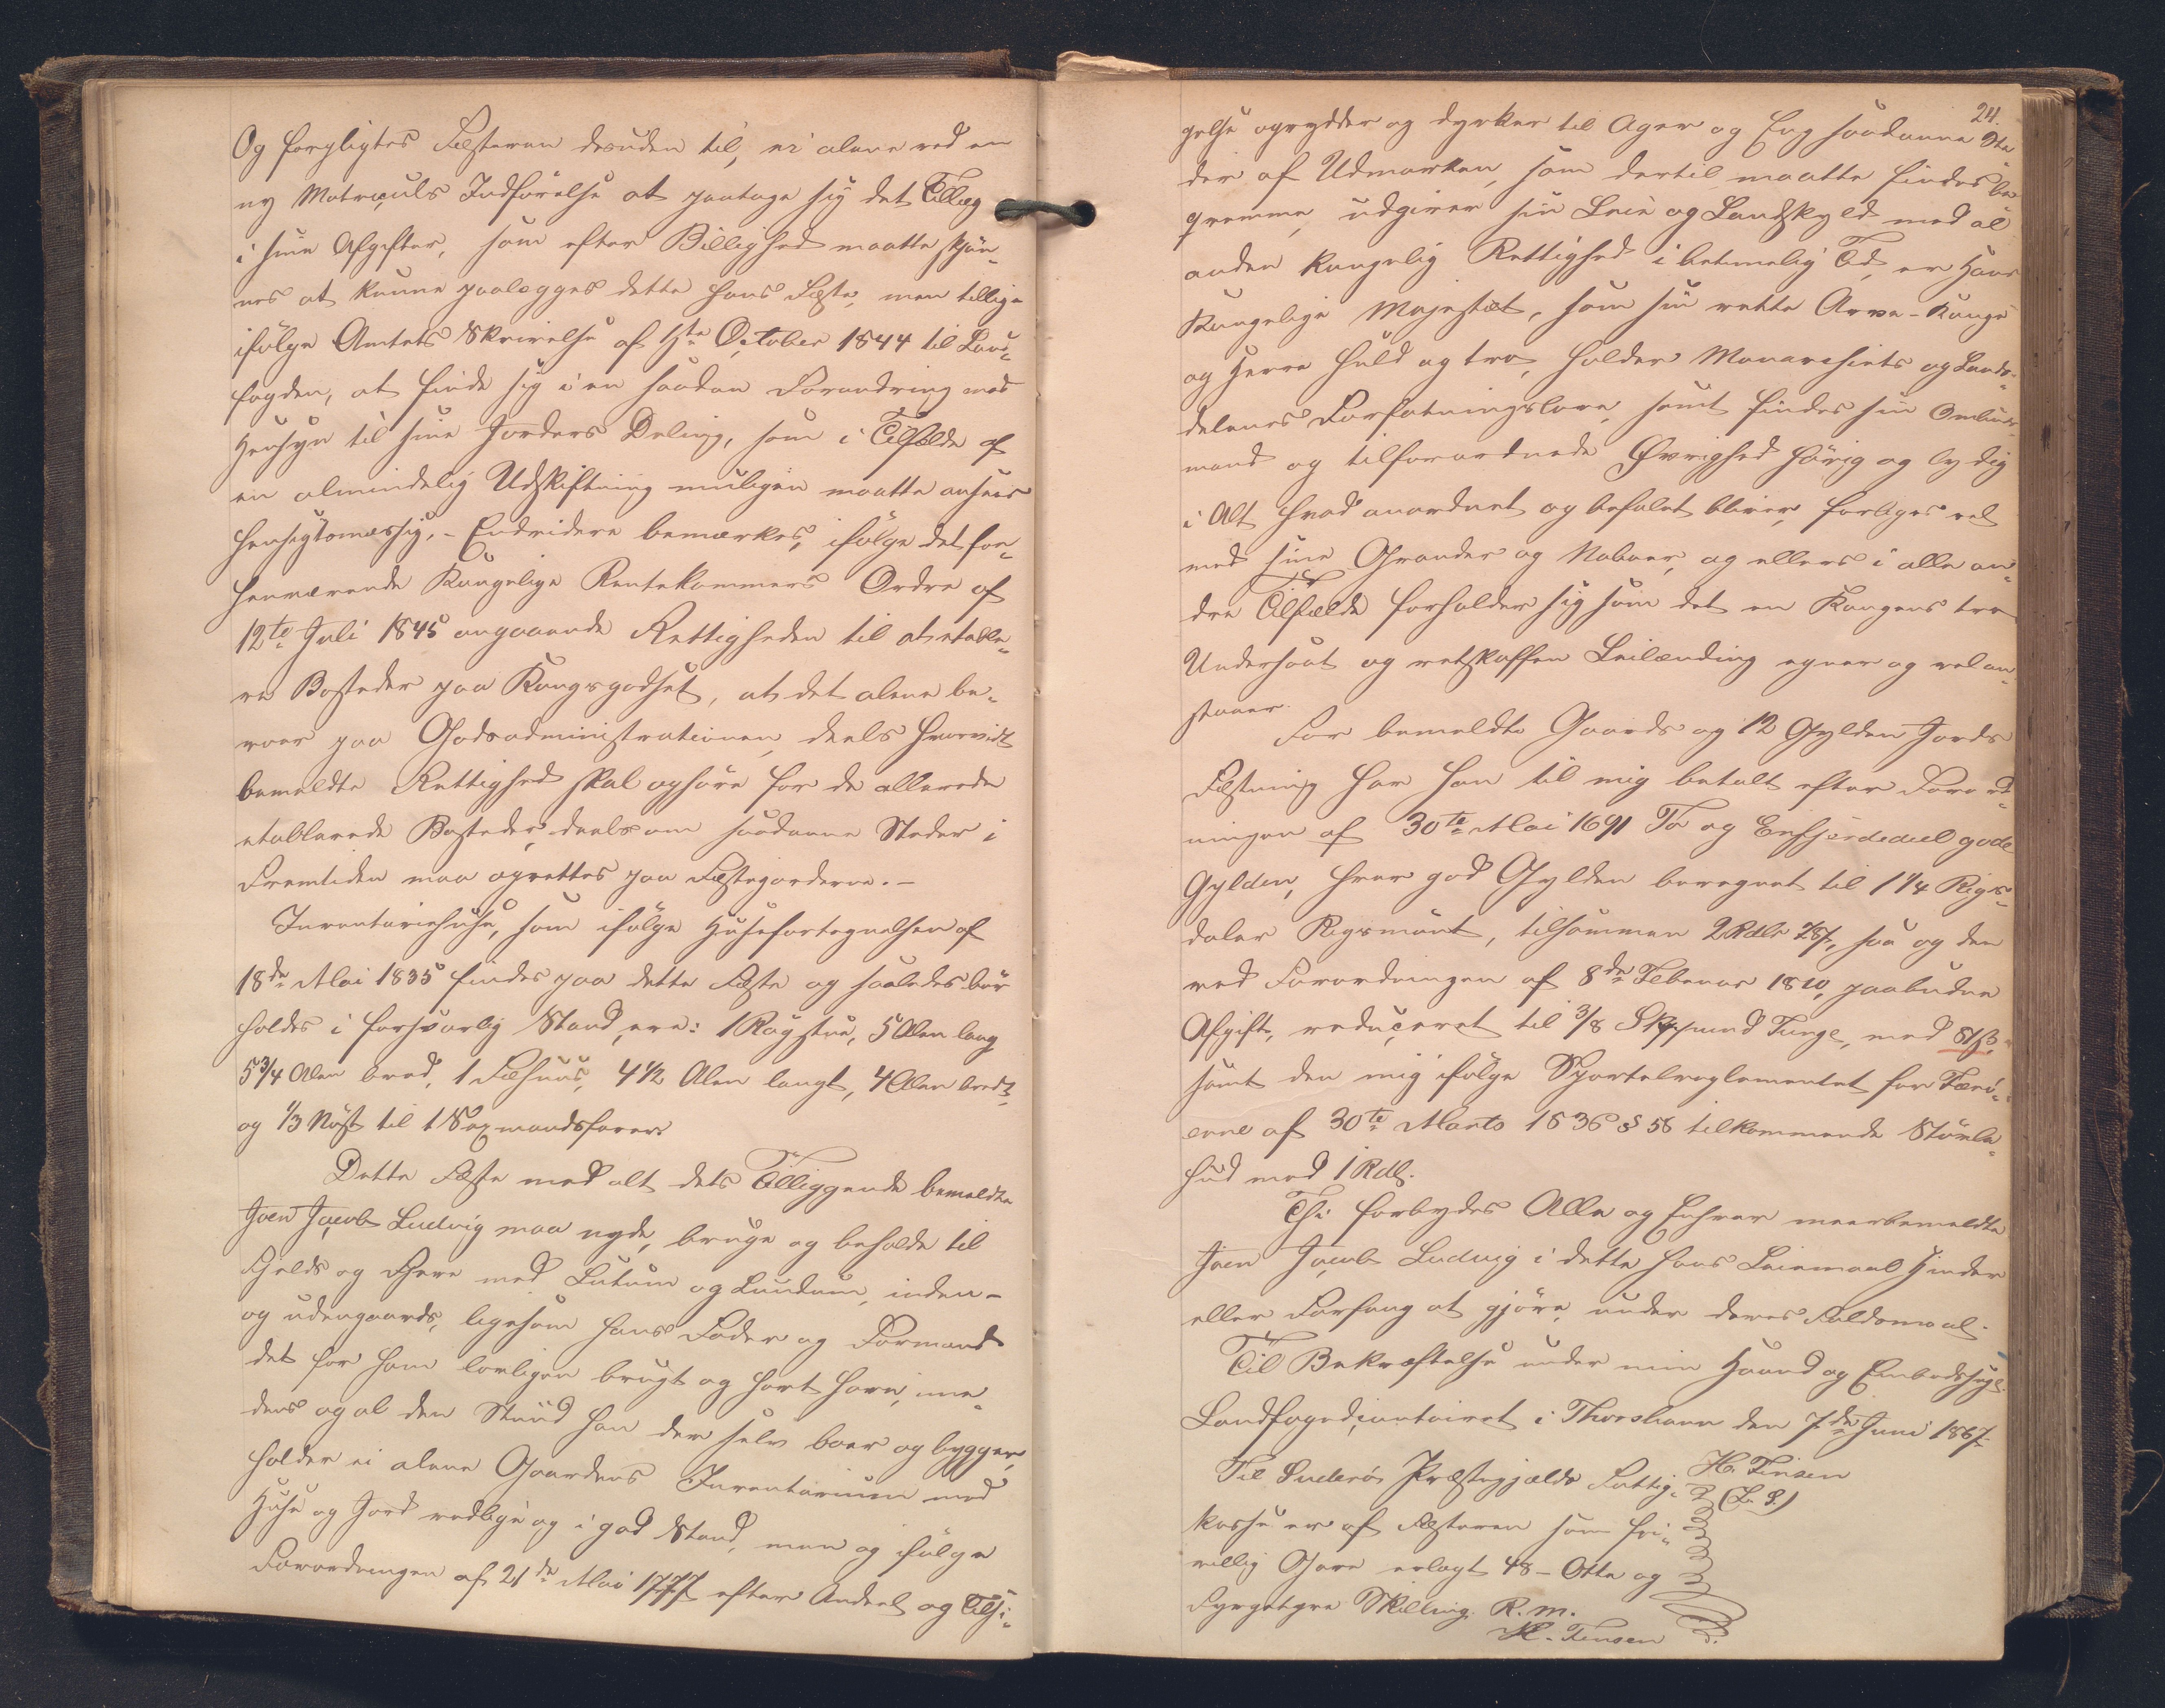 Og forpligtes Fæsteren desuden til, ei alene ved en
ny Matriculs Indförelse at paatage sig det Tillæg
i sine Afgifter, som efter Billighed maatte skjön-
nes at kunne paalægges dette hans Fæste, men tillige
ifölge Amtets Skrivelse af 4de October 1844 til Land-
fogden, at finde sig i en saadan Forandring med
Hensyn til sine Jorders Deling, som i Tilfælde af
en almindelig Udskiftning muligen maatte ansees
hensigtsmæssig. - Endvidere bemærkes, ifölge det for-
henværende Kongelige Rentekammers Ordre af
12te Juli 1845 angaaende Rettigheden til at etable-
re Bosteder paa Kongsgodset, at det alene be-
roer paa Godsadministrationen, deels hvorvidt
bemeldte Rettighed skal ophöre for de allerede
etablerede Bosteder, deels om saadanne Steder i
Fremtiden maa oprettes paa Fæstejorderne. -
Inventariehuse, som ifölge Husefortegnelsen af
18de Mai 1835 findes paa dette Fæste og saaledes bör
holdes i forsvarlig Stand, ere: 1 Rögstue, 5 Alen lang
5 3/4 Alen bred, 1 Fæhuus, 4 1/2 Alen langt, 4 Alen bredt,
og 1/3 Nöst til 1 Sexmandsfarer.
Dette Fæste med alt dets Tilliggende bemeldte
Joen Jacob Ludvig maa nyde, bruge og beholde til
Fjelds og Fjere med Lutum og Lundum, inden-
og udengaards, ligesom hans Fader og Formand
det for ham lovligen brugt og havt have, ime-
dens og al den Stund han der selv boer og bygger,
holder ei alene Gaardens Inventarium med
Huse og Jord vedlige og i god Stand, men og ifölge
Forordningen af 21de Mai 1777 efter Andeel og Tilsi-
24.
gelse oprydder og dyrker til Ager og Eng saadanne Ste
der af Udmarken, som dertil maatte findes be
qvemme, udgiver sin Leie og Landskyld med al
anden kongelig Rettighed i betimelig Tid, er Hans
Kongelige Majestæt, som sin rette Arve-Konge
og Herre huld og tro, holder Monarchiets og Lands-
delenes Forfatningslove, samt findes sin Ombuds-
mand og tilforordnede Øvrighed hörig og lydig
i Alt hvad anordnet og befalet bliver, forliges vel
med sine Grander og Naboer, og ellers i alle an-
dre Tilfælde forholder sig som det en Kongens tro
Undersaat og retskaffen Leilænding egner og vel an-
staaer.
For bemeldte Gaards og 12 Gylden Jords
Fæstning har han til mig betalt efter Forord-
ningen af 30te Mai 1691 To og Enfjerdedeel gode
Gylden, hver god Gylden beregnet til 1 1/4 Rigs-
daler Rigsmönt, tilsammen 2 Rdlr 78ß, saa og den
ved Forordningen af 8de Februar 1810, paabudne
Afgift, reduceret til 3/8 Skppund Tunge, med 81ß,
samt den mig ifölge Sportelreglementet for Færö-
erne af 30te Marts 1836 § 58 tilkommende Stövle-
hud med 1 Rdlr.
Thi forbydes Alle og Enhver meerbemeldte
Joen Jacob Ludvig i dette hans Leiemaal Hinder
eller Forfang at gjöre, under deres Faldsmaal.
Til Bekræftelse under min Haand og Embedssegl.
Landfogedcontoiret i Thorshavn den 7de Juni 1867.
H. Finsen
(L. S.)
Til Suderö Præstegjælds Fattig-
kasse er af Fæsteren som fri-
villig Gave erlagt 48 - Otte og
Fyrgetyve Skilling R. M.
H. Finsen